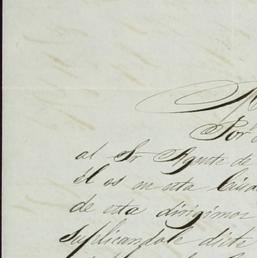 Por
al Sr Agente de
él os en esta Ciu
de esta dirigimos
suplicandole dicte